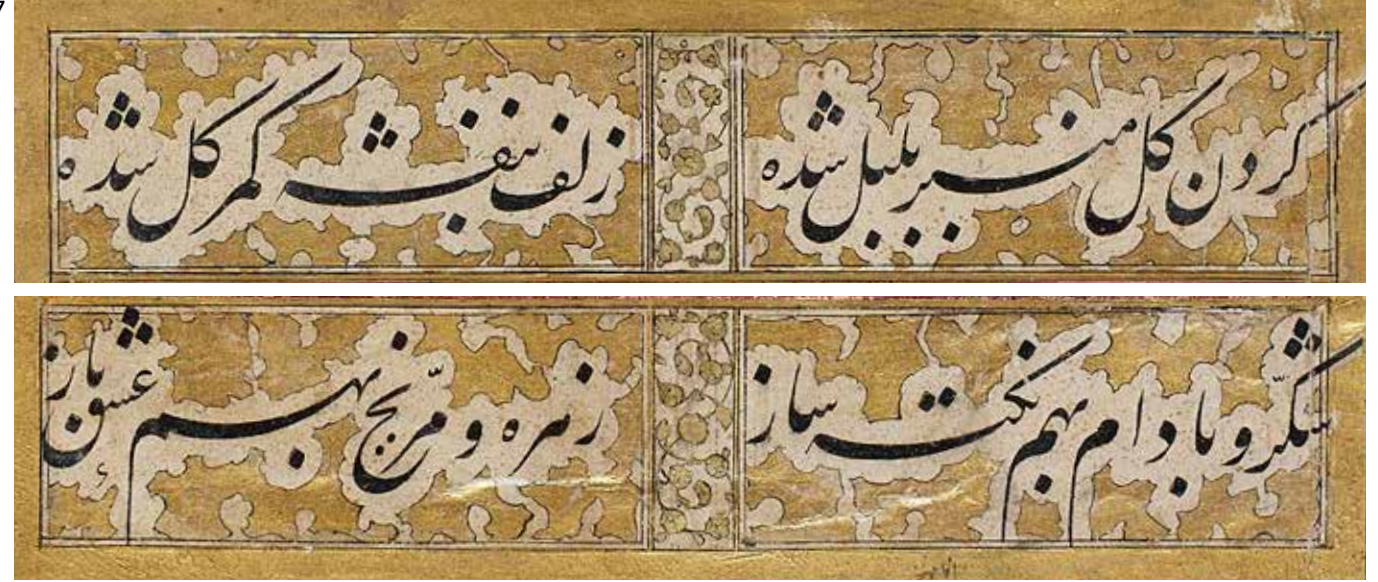 گردن گل منبر بلبل شده
زلف بنفشه کمر گل شده
شکّر و بادام بهم نکته ساز
زهره و مرّیخ بهم عشق باز